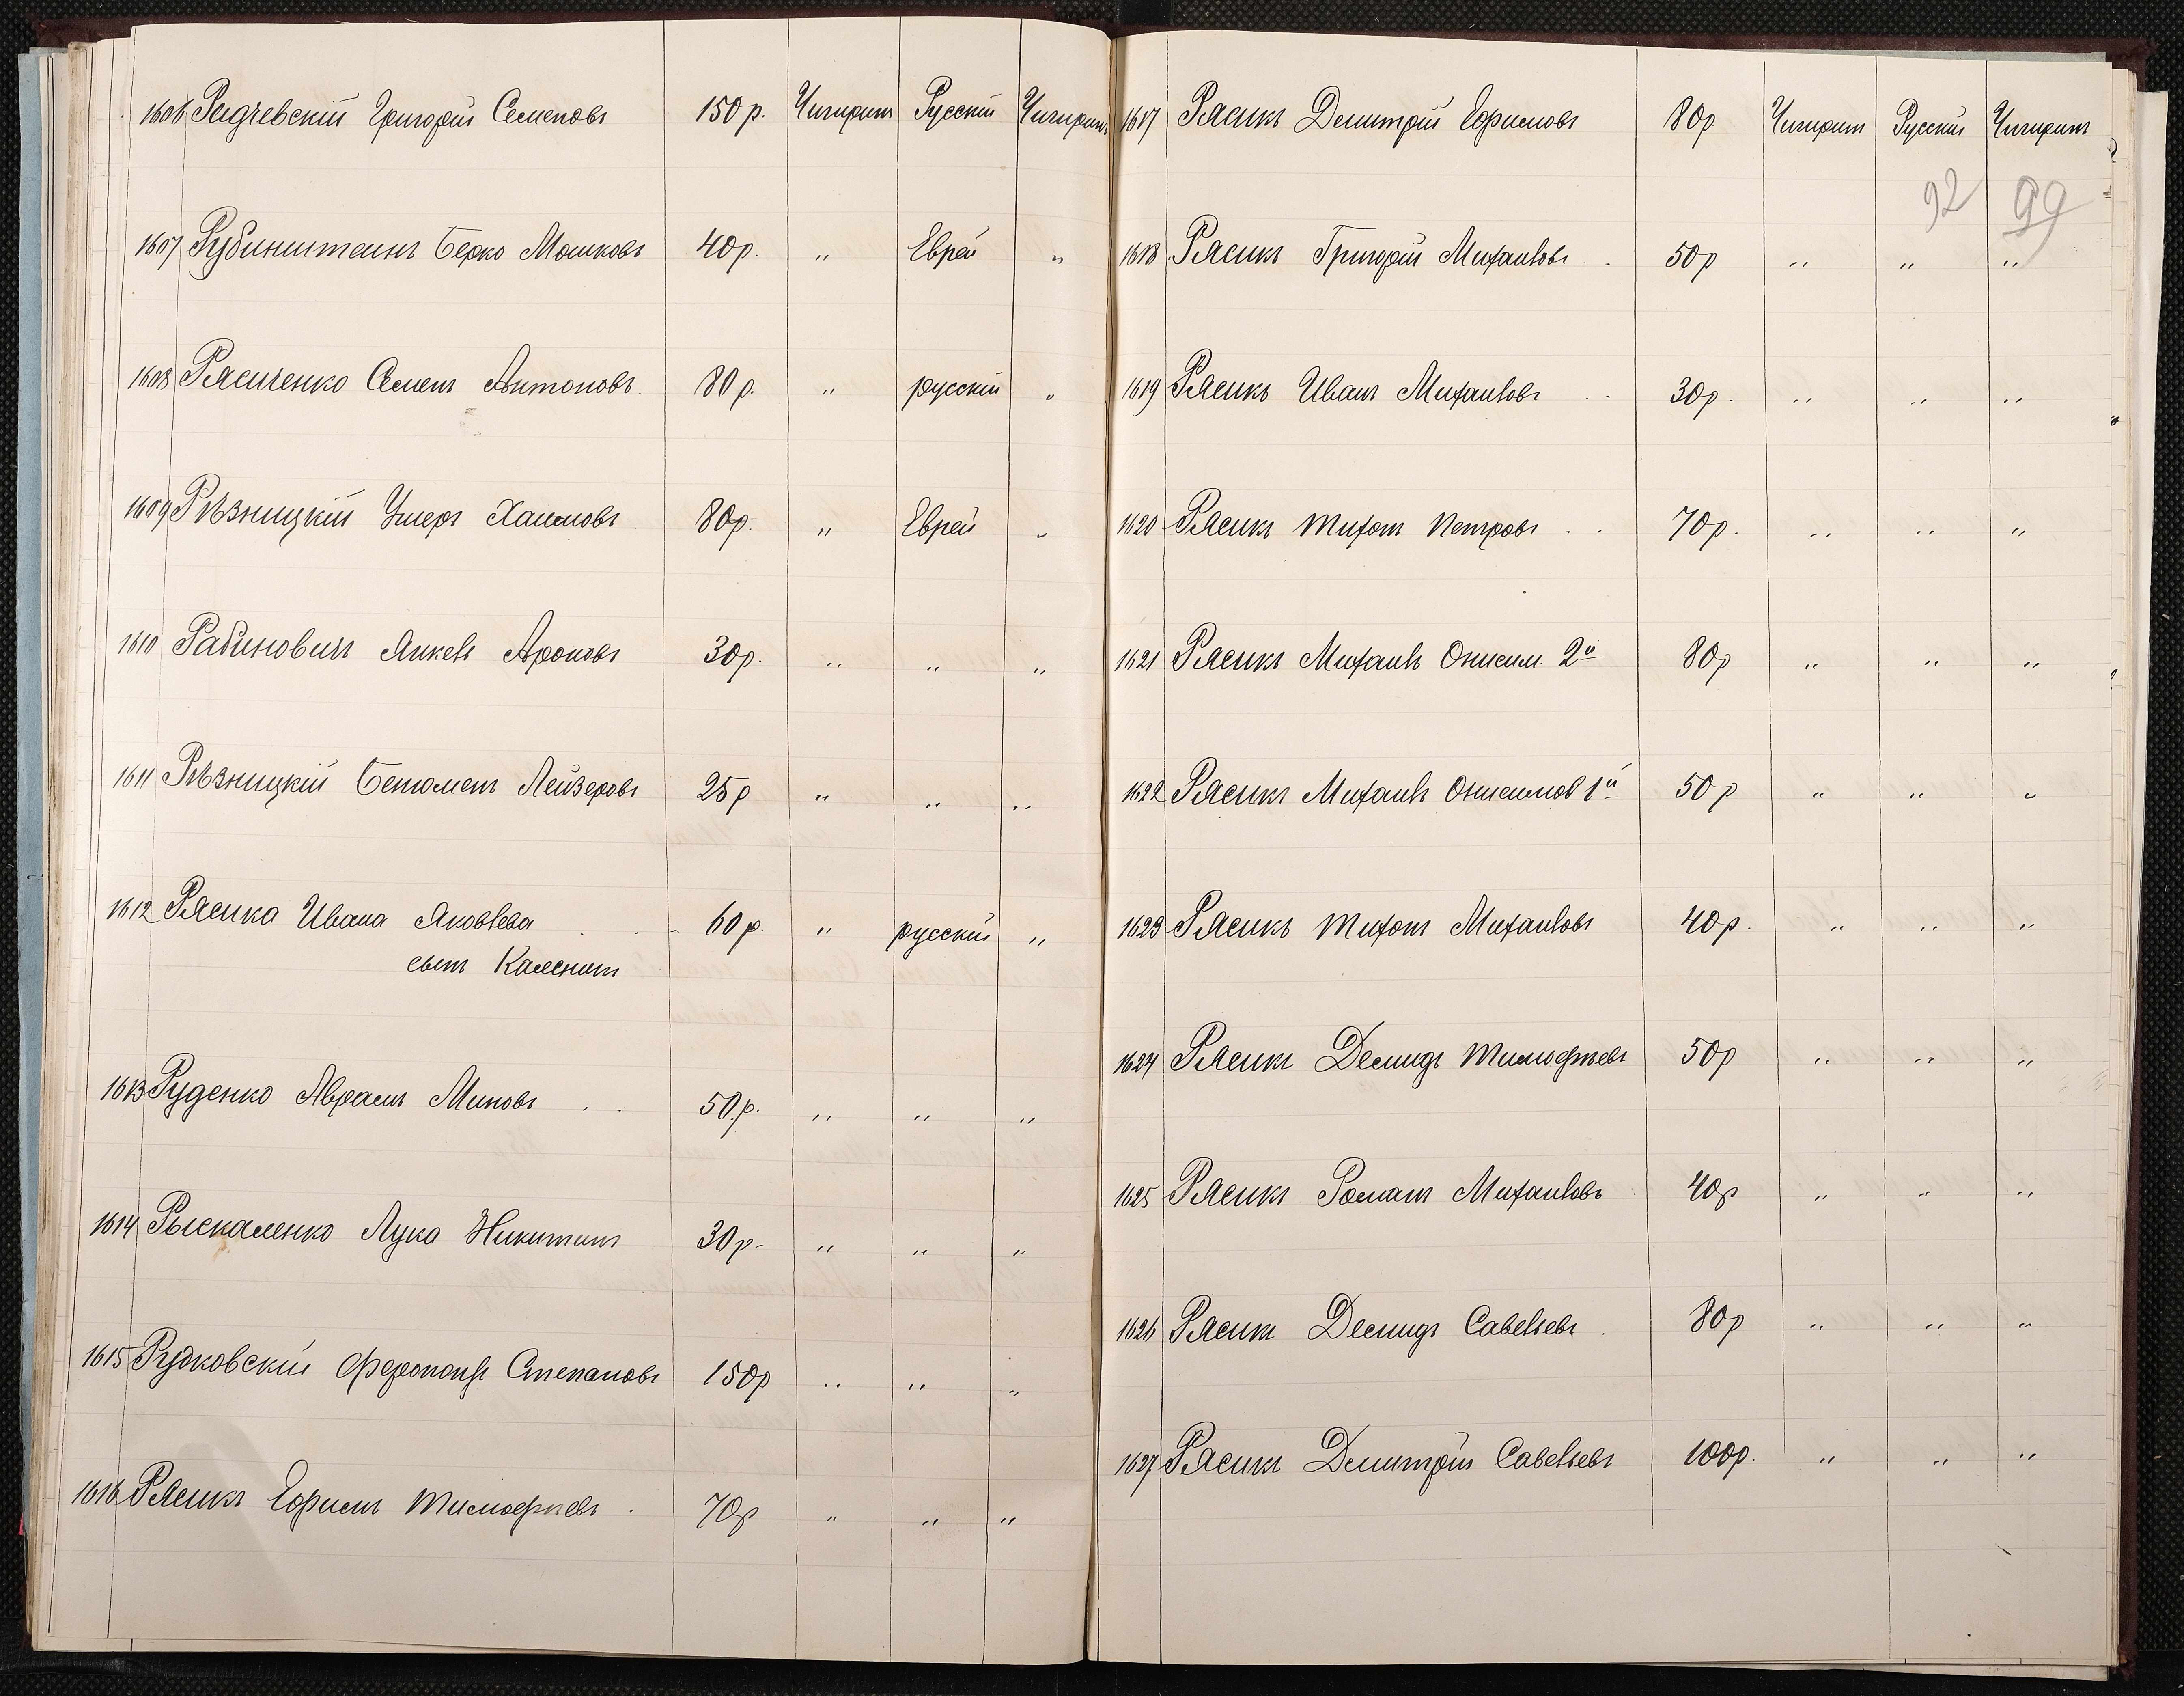 1606 Радчевскій Григорій Семеновъ 150 р. Чигиринъ Русскій Чигиринъ
1607 Рубинштейнъ Берко Мошковъ 40 р. " Еврей "
1608 Рясиченко Семенъ Антоновъ 80 р. " русскій "
1609 Рѣзницкій Ушеръ Хаимовъ 80 р. " Еврей "
1610 Рабиновичъ Янкель Ароновъ 30 р. " " "
1611 Рѣзницкій Лейзеровъ 25 р " " "
1612 Рясика Ивана Яковлева 60 р. " русскій "
сынъ
1613 Руденко Аврамъ Миновъ 50 р. " " "
1614 Рыскаленко Лука Никитинъ 30 р. " " "
1615 Рудковскій Ферапонтъ Степановъ 150 р " " "
1616 Рясикъ Ефимъ Тимофѣевъ 70 р " " "
1617 Рясикъ Димитрій Ефимовъ 80 р Чигиринъ Русскій Чигиринъ
92 99
1618 Рясикъ Григорій Михайловъ 50 р " " "
1619 Рясикъ Иванъ Михайловъ 30 р. " " "
1620 Рясикъ Тихонъ Петровъ 70 р. " " "
1621 Рясикъ Михаилъ Онисим. 2й 80 р " " "
1622 Рясикъ Михаилъ Онисимов 1й 50 р " " "
1623 Рясикъ Тихонъ Михайловъ 40 р. " " "
1624 Рясикъ Демидъ Тимофѣевъ 50 р " " "
1625 Рясикъ Романъ Михайловъ 40 р " " "
1626 Рясикъ Демидъ Савельевъ 80 р " " "
1627 Рясикъ Димитрій Савельевъ 100 р. " " "